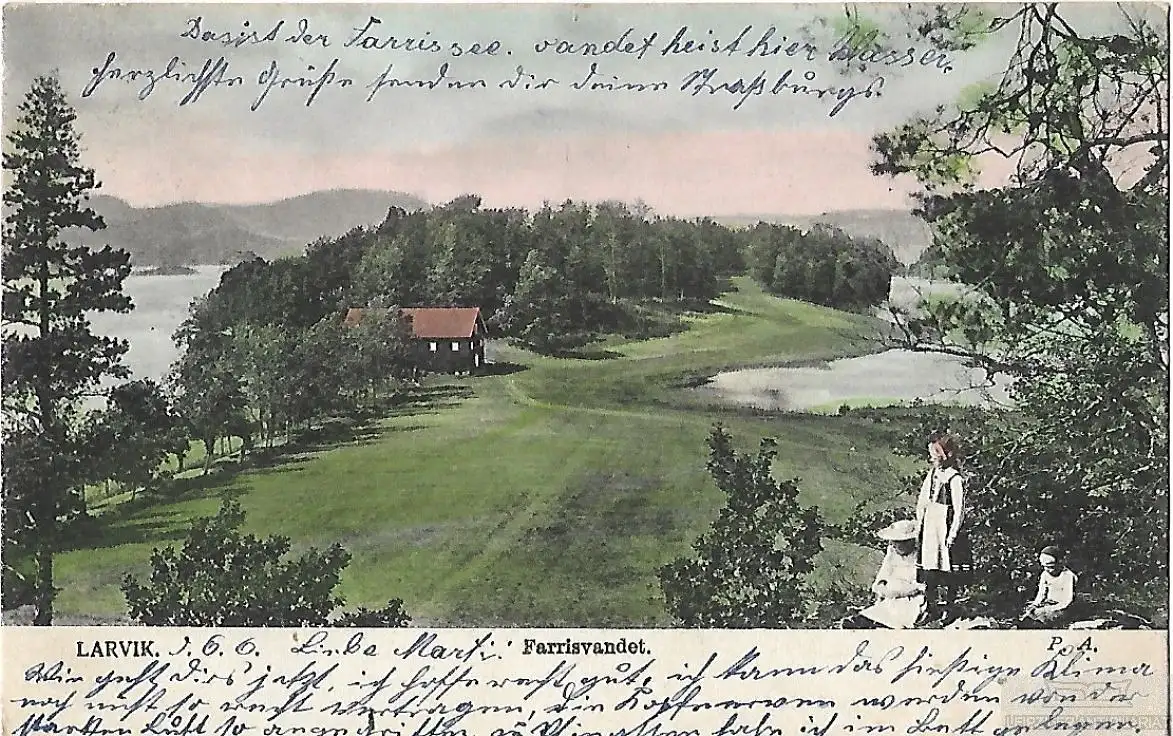 Das ist der Farrissee. vandet heist hier Wasser.
herzlichste Grüße senden dir deine Straßburgs.
LARVIK. 5. 6. 6. Liebe Marti! Farrisvandet. P. A.
Wie geht dirs jetzt, ich hoffe recht gut, ich kann das hiesige Klima
noch nicht so recht vertragen, die Kopfnerven werden von der
starken Luft so angegriffen, zu Pfingsten habe ich im Bett gelegen.